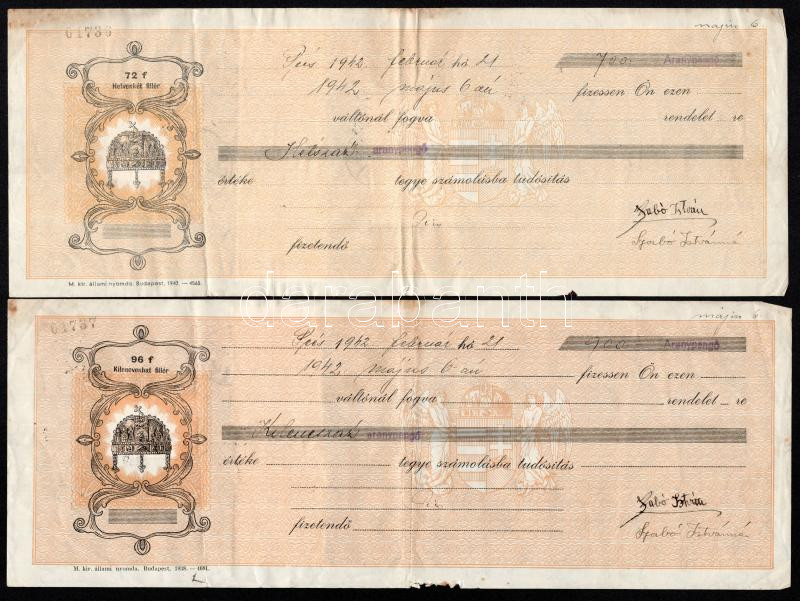 61736
május 6
72 f
Hetvenkét fillér
Pécs 1942 február hó 21
700 Aranypengő
1942 május 6-án fizessen Ön ezen
váltónál fogva rendelet re
Hétszáz aranypengő
értéke tegye számolásba tudósítás
Szabó István
fizetendő
Szabó Istvánné
M. kir. állami nyomda. Budapest, 1942. — 4565.
darabanth
61737
május 6
96 f
Kilencvenhat fillér
Pécs 1942 február hó 21
900 Aranypengő
1942 május 6-án fizessen Ön ezen
váltónál fogva rendelet re
Kilencszáz aranypengő
értéke tegye számolásba tudósítás
Szabó István
fizetendő
Szabó Istvánné
M. kir. állami nyomda. Budapest, 1938. — 4691.